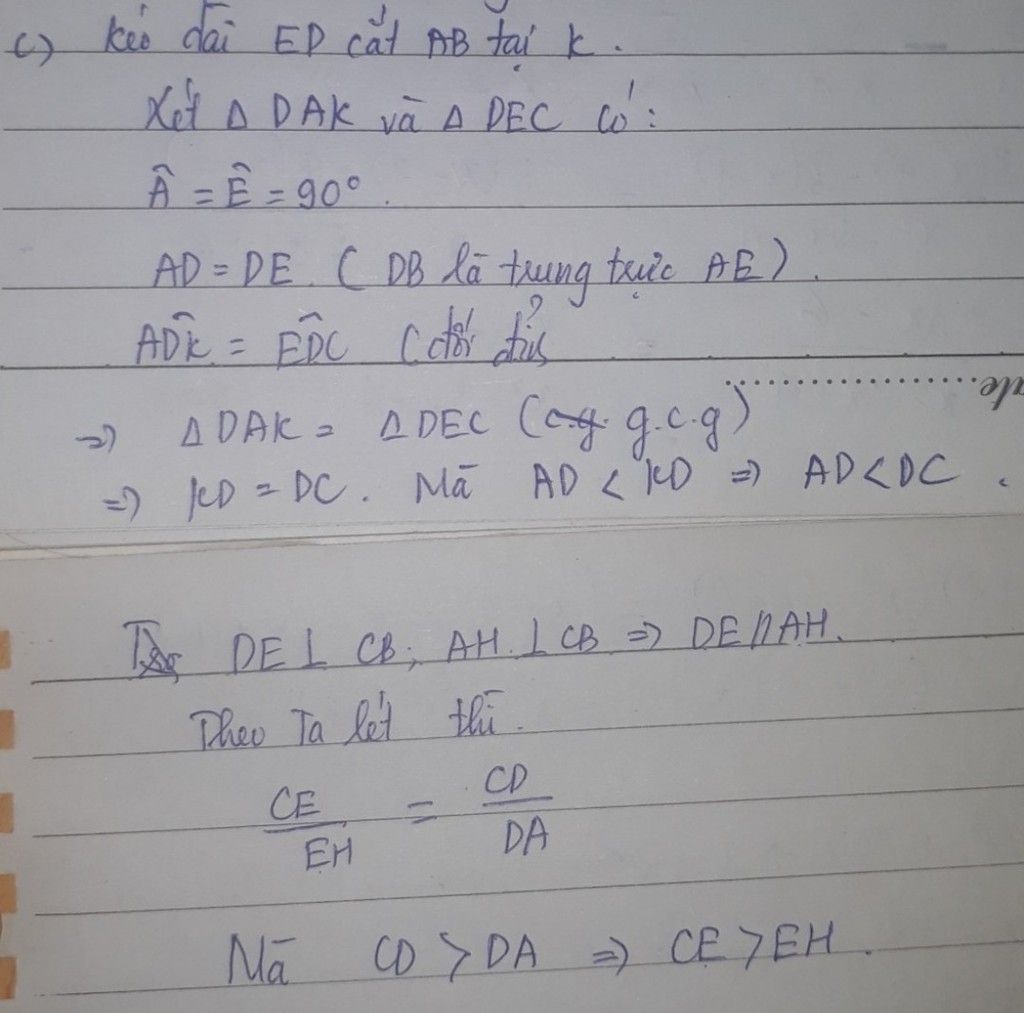 c) kéo dài ED cắt AB tại K.
Xét Δ DAK và Δ DEC có:
Â = Ê = 90°.
AD = DE. ( DB là trung trực AE).
ADK̂ = EDĈ (đối đỉnh
⇒ Δ DAK = Δ DEC (c.g. g.c.g)
⇒ KD = DC. Mà AD < KD ⇒ AD < DC.
DE ⊥ CB; AH ⊥ CB ⇒ DE // AH.
Theo Ta lét thì.
CE/EH = CD/DA
Mà CD > DA ⇒ CE > EH.